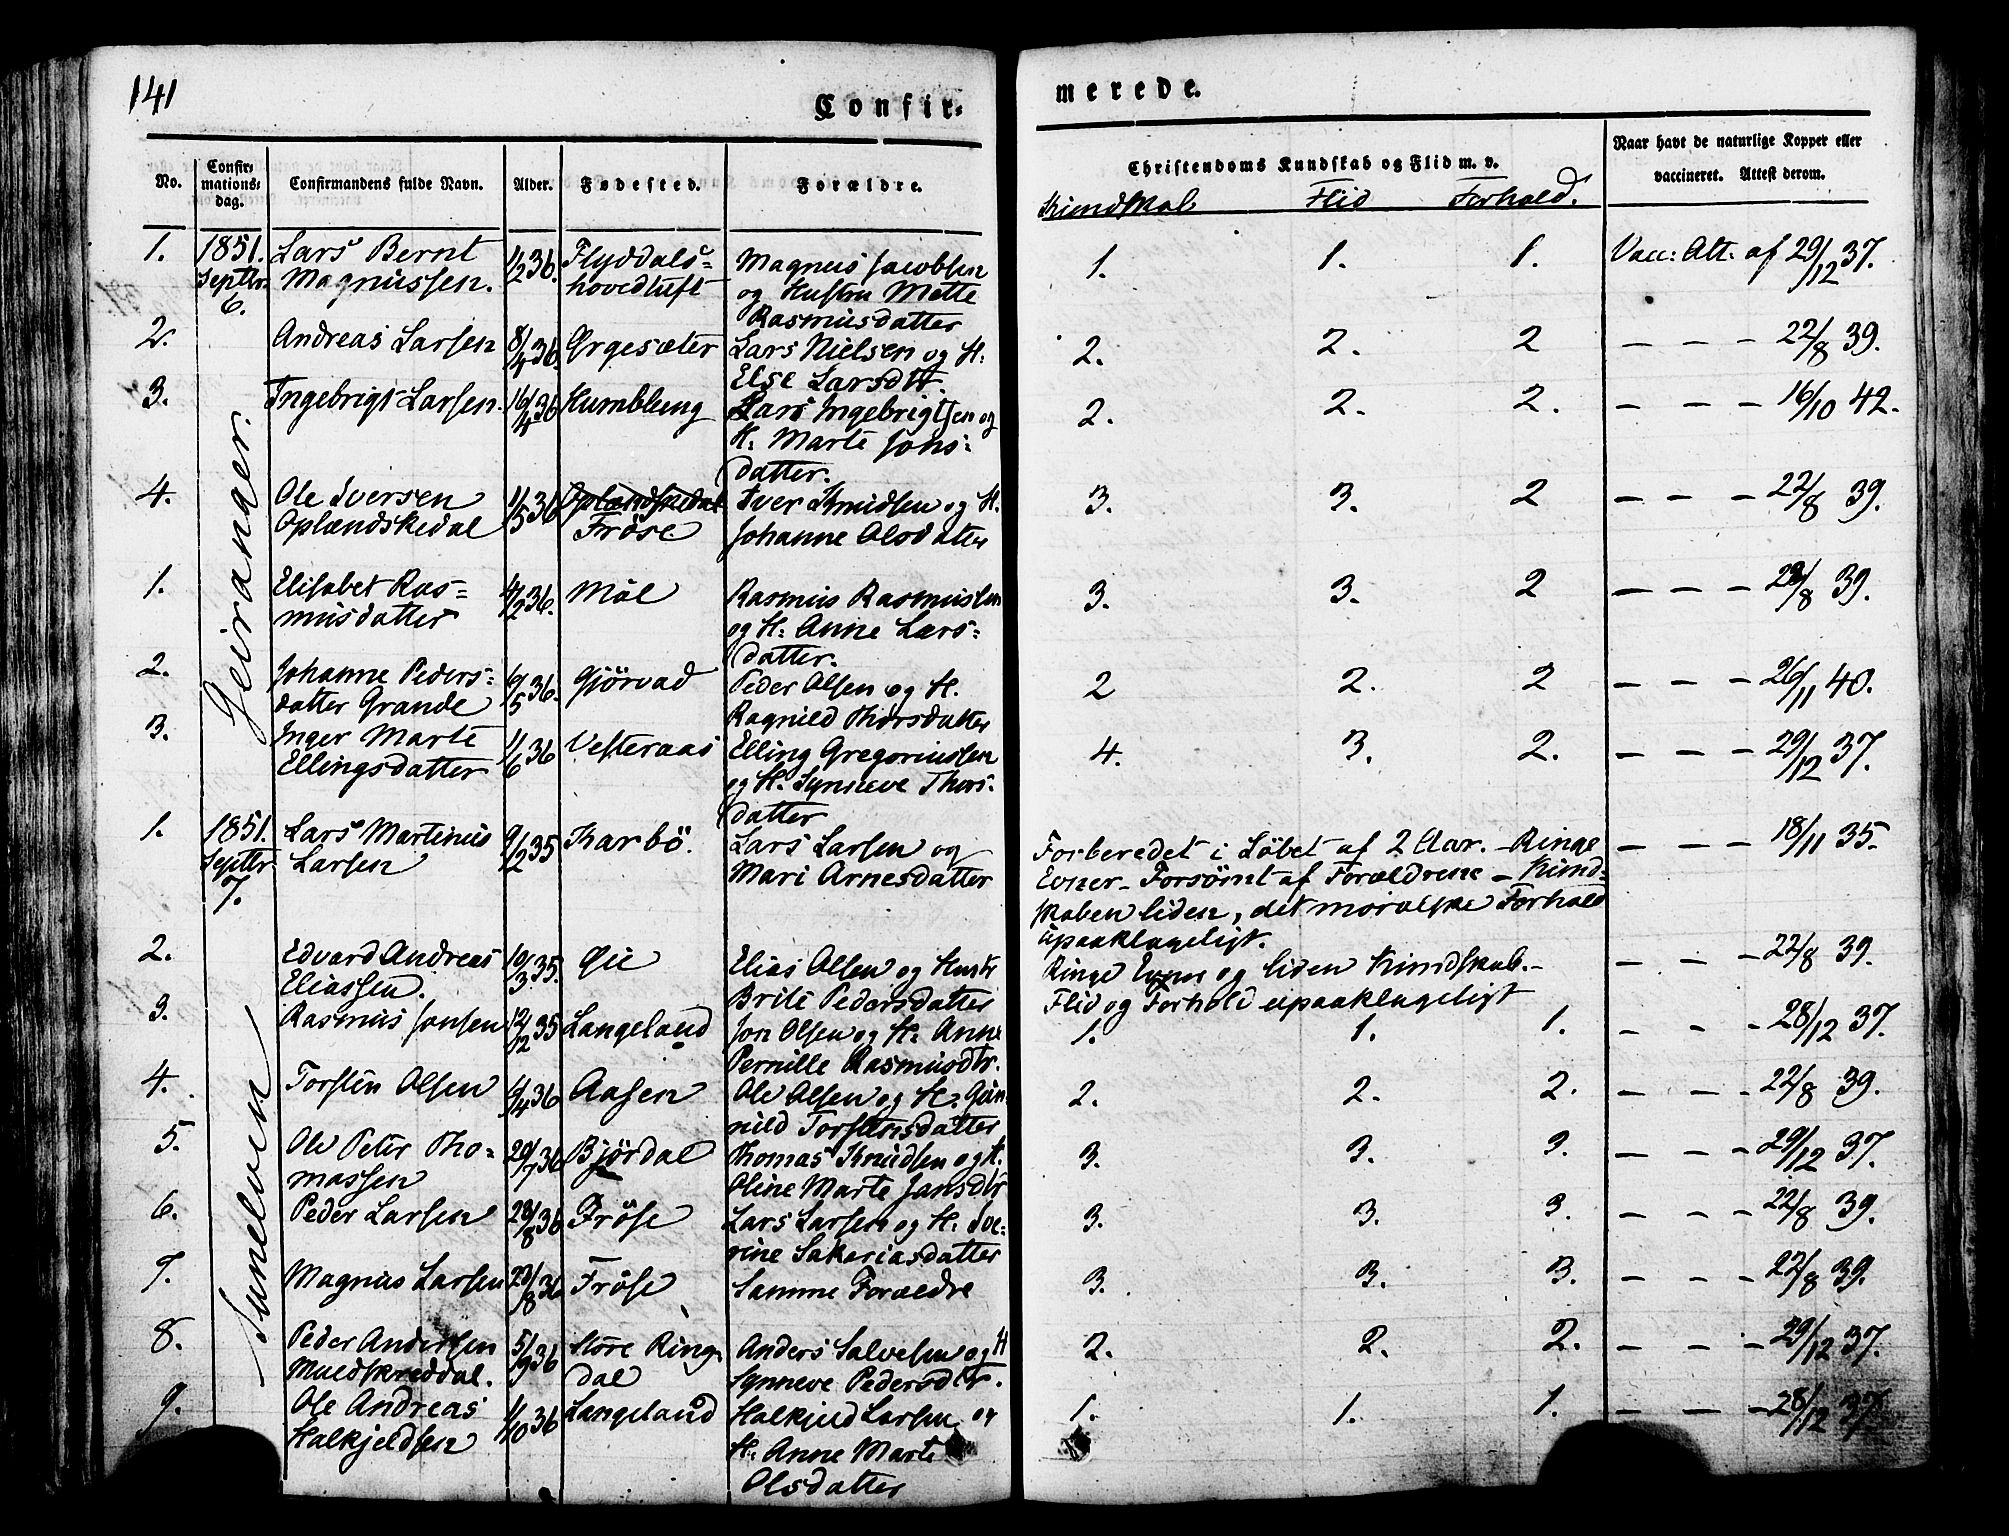 141
Confir-
merede.
No.
Confir-
mations-
dag.
Confirmandens fulde Navn.
Alder.
Fødested.
Forældre.
Christendoms Kundskab og Flid m. v.
Naar havt de naturlige Kopper eller
vaccineret. Attest derom.
Kundskab Flid Forhold.
Geiranger.
1. 1851. Septbr. 6. Lars Bernt Magnussen. 1/2 36. Flyddals-hovedtuft Magnus Jacobsen og Hustru Mette Rasmusdatter 1. 1. 1. Vacc: Att: af 29/12 37.
2. Andreas Larsen 8/4 36 Grgesæter Lars Nielsen og H: Else Larsdtr. 2. 2. 2 — — — 22/8 39.
3. Ingebrigt Larsen. 16/4 36 Humblung Lars Ingebrigtsen og H: Marte Jons-datter. 2. 2. 2. — — — 16/10 42.
4. Ole Iversen Oplændskedal 1/5 36 Oplændskedal Frøse Iver Knudsen og H. Johanne Olsdatter 3. 3. 2 — — — 22/8 39.
1. Elisabet Ras-musdatter 4/2 36. Møl Rasmus Rasmussen og H: Anne Lars-datter. 3. 3. 2 — — — 22/8 39.
2. Johanne Peders-datter Grande 6/5 36. Gjørvad Peder Olsen og H. Ragnild Thorsdatter 2 2. 2 — — — 26/11 40.
3. Inger Marte Ellingsdatter 1/6 36 Vesteraas Elling Gregoriussen og H. Synneve Thors-datter 4. 3. 2. — — — 29/12 37.
Sunelven
1. 1851. Septbr. 7. Lars Martinus Larsen 9/2 35 Karbø. Lars Larsen og Mari Arnesdatter — — — 18/11 35.
Forberedet i Løbet af 2 Aar. — Ringe
Evner — Forsømt af Forældrene — Kund-
skaben liden, det moralske Forhold
upaaklageligt.
2. Edvard Andreas Eliassen. 10/3 35. Øie Elias Olsen og Hustr Brite Pedersdatter — — — 22/8 39.
Ringe Evne og liden Kundskab. —
Flid og Forhold upaaklageligt
3. Rasmus Jonsen 12/12 35 Langeland Jon Olsen og H: Anne Pernille Rasmusdtr. 1. 1. 1. — — — 28/12 37.
4. Torsten Olsen 4/4 36 Aasen Ole Olsen og H. Gun-nild Torstensdatter 2. 2. 2. — — — 22/8 39.
5. Ole Peter Tho-massen 20/7 36 Bjørdal Thomas Knudsen og H. Oline Marte Jansdtr 3. 3. 3. — — — 29/12 37.
6. Peder Larsen 28/8 36 Frøse Lars Larsen og H: Se-verine Sakariasdatter 3. 3. 3. — — — 22/8 39.
7. Magnus Larsen 28/8 36 Frøse Samme Forældre 3. 3. 3. — — — 22/8 39.
8. Peder Andersen Muldskreddal. 5/9 36 Store Ring-dal Anders Salvesen og H Synneve Pedersdtr. 2. 2. 2. — — — 29/12 37.
9. Ole Andreas Halkjeldsen 1/10 36 Langeland Halkjeld Larsen og H: Anne Marte Olsdatter 1. 1. 1. — — — 28/12 37.